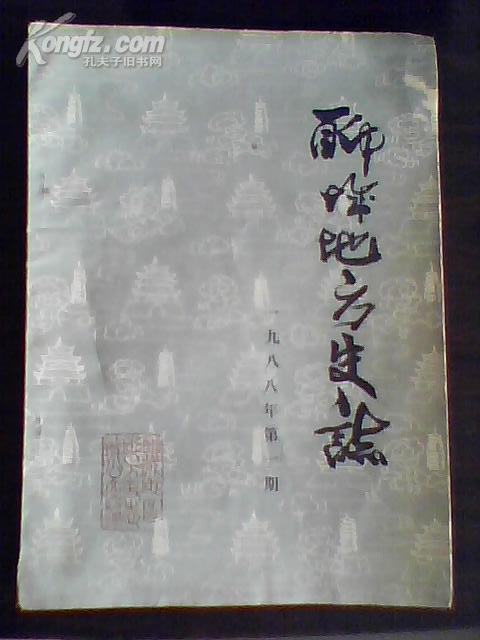 Kongfz.com
孔夫子旧书网
聊城地方史志
一九八八年第一期